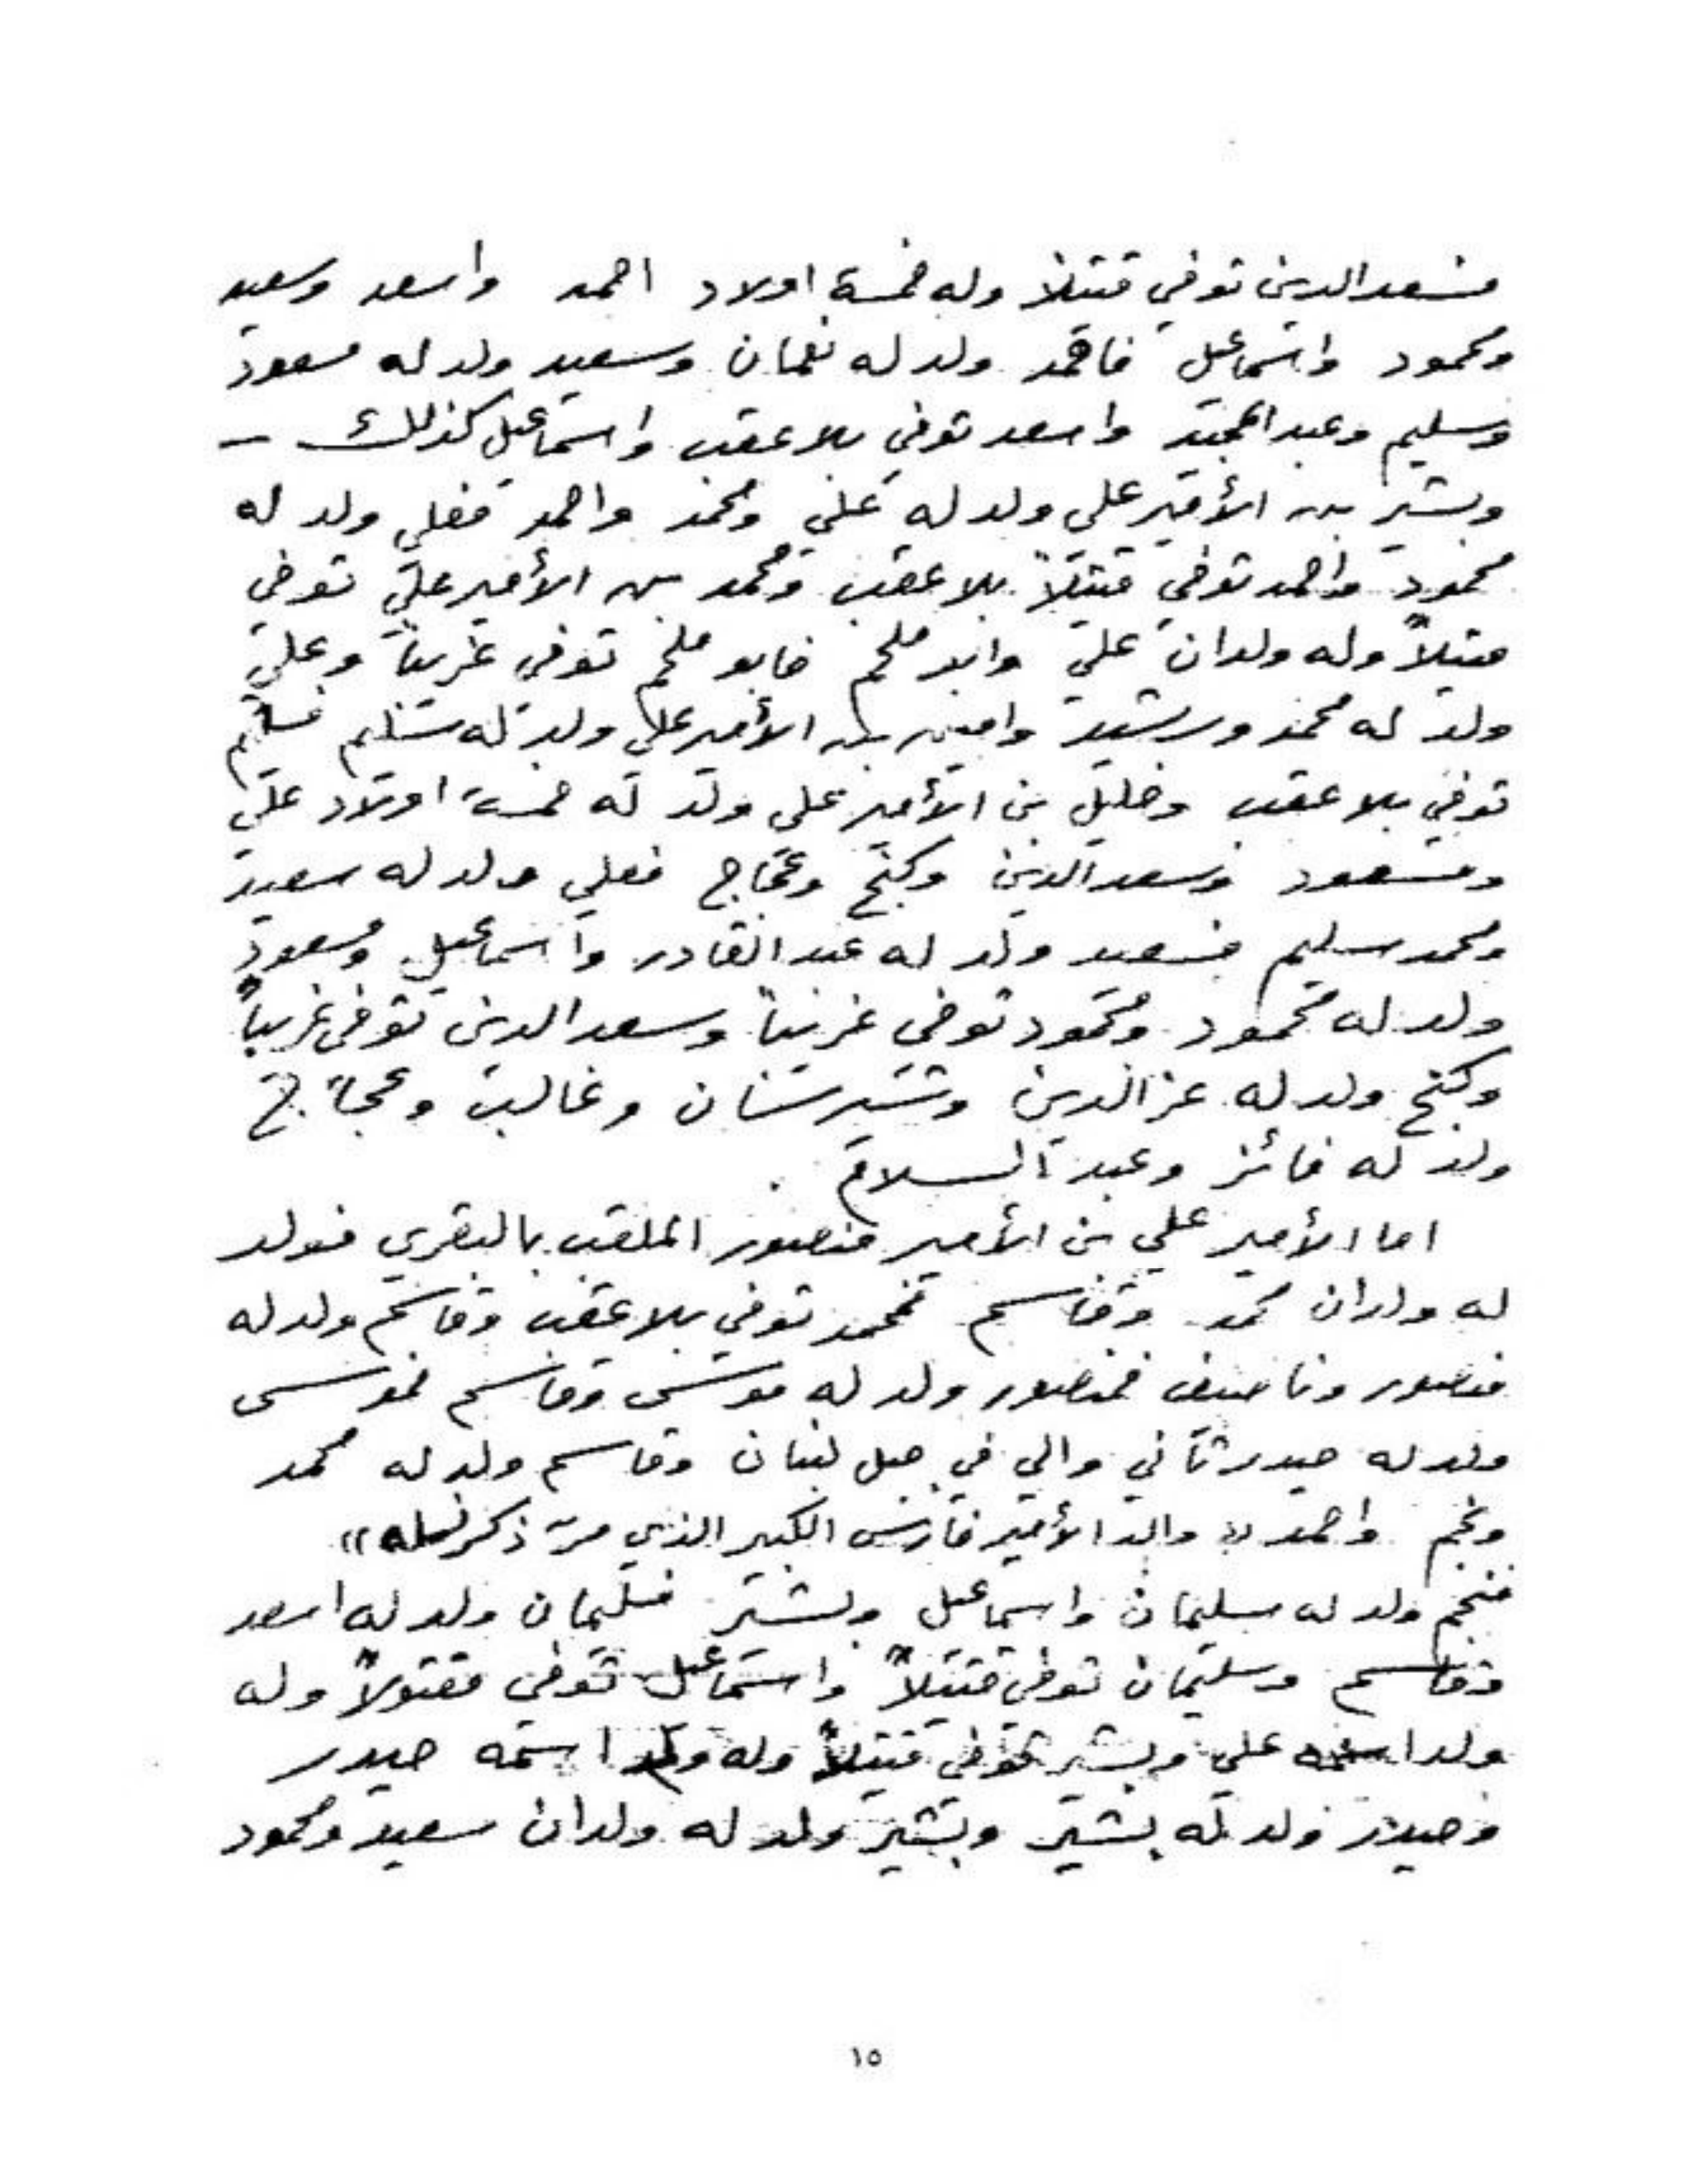 فسعد الدين توفي قتيلاً وله خمسة اولاد احمد واسعد وسعيد
ومحمود واسماعيل فاحمد ولد له نعمان وسعيد ولد له مسعود
وسليم وعبد المجيد واسعد توفي بلا عقب واسماعيل كذلك –
وبشير بن الأمير علي ولد له علي ومحمد واحمد فعلي ولد له
محمود واحمد توفي قتيلاً بلا عقب ومحمد بن الأمير علي توفي
قتيلاً وله ولدان علي وابو ملحم فابو ملحم توفي غريباً وعلي
ولد له محمد ورشيد وامين بن الأمير علي ولد له سليم فسليم
توفي بلا عقب وخليل بن الأمير علي ولد له خمسة اولاد علي
ومسعود وسعد الدين وكنج وعجاج فعلي ولد له سعيد
ومحمد سليم فسعيد ولد له عبد القادر واسماعيل ومسعود
ولد له محمود ومحمود توفي غريباً وسعد الدين توفي غريباً
وكنج ولد له عز الدين وشبرسنان وغالب وعجاج
ولد له فائز وعبد السلام .
اما الأمير علي بن الأمير منصور الملقب بالبقري فولد
له ولدان محمد وقاسم فمحمد توفي بلا عقب وقاسم ولد له
منصور وناصيف فمنصور ولد له موسى وقاسم فموسى
ولد له حيدر ثاني والي في جبل لبنان وقاسم ولد له محمد
ونجم واحمد « والد الأمير فارس الكبير الذي مرّ ذكر نسله »
فنجم ولد له سليمان واسماعيل وبشير فسليمان ولد له اسعد
وقاسم وسليمان توفي قتيلاً واسماعيل توفي مقتولاً وله
ولد اسمه علي وبشير توفي قتيلاً وله ولد اسمه حيدر
وحيدر ولد له بشير وبشير ولد له ولدان سعيد ومحمود
١٥